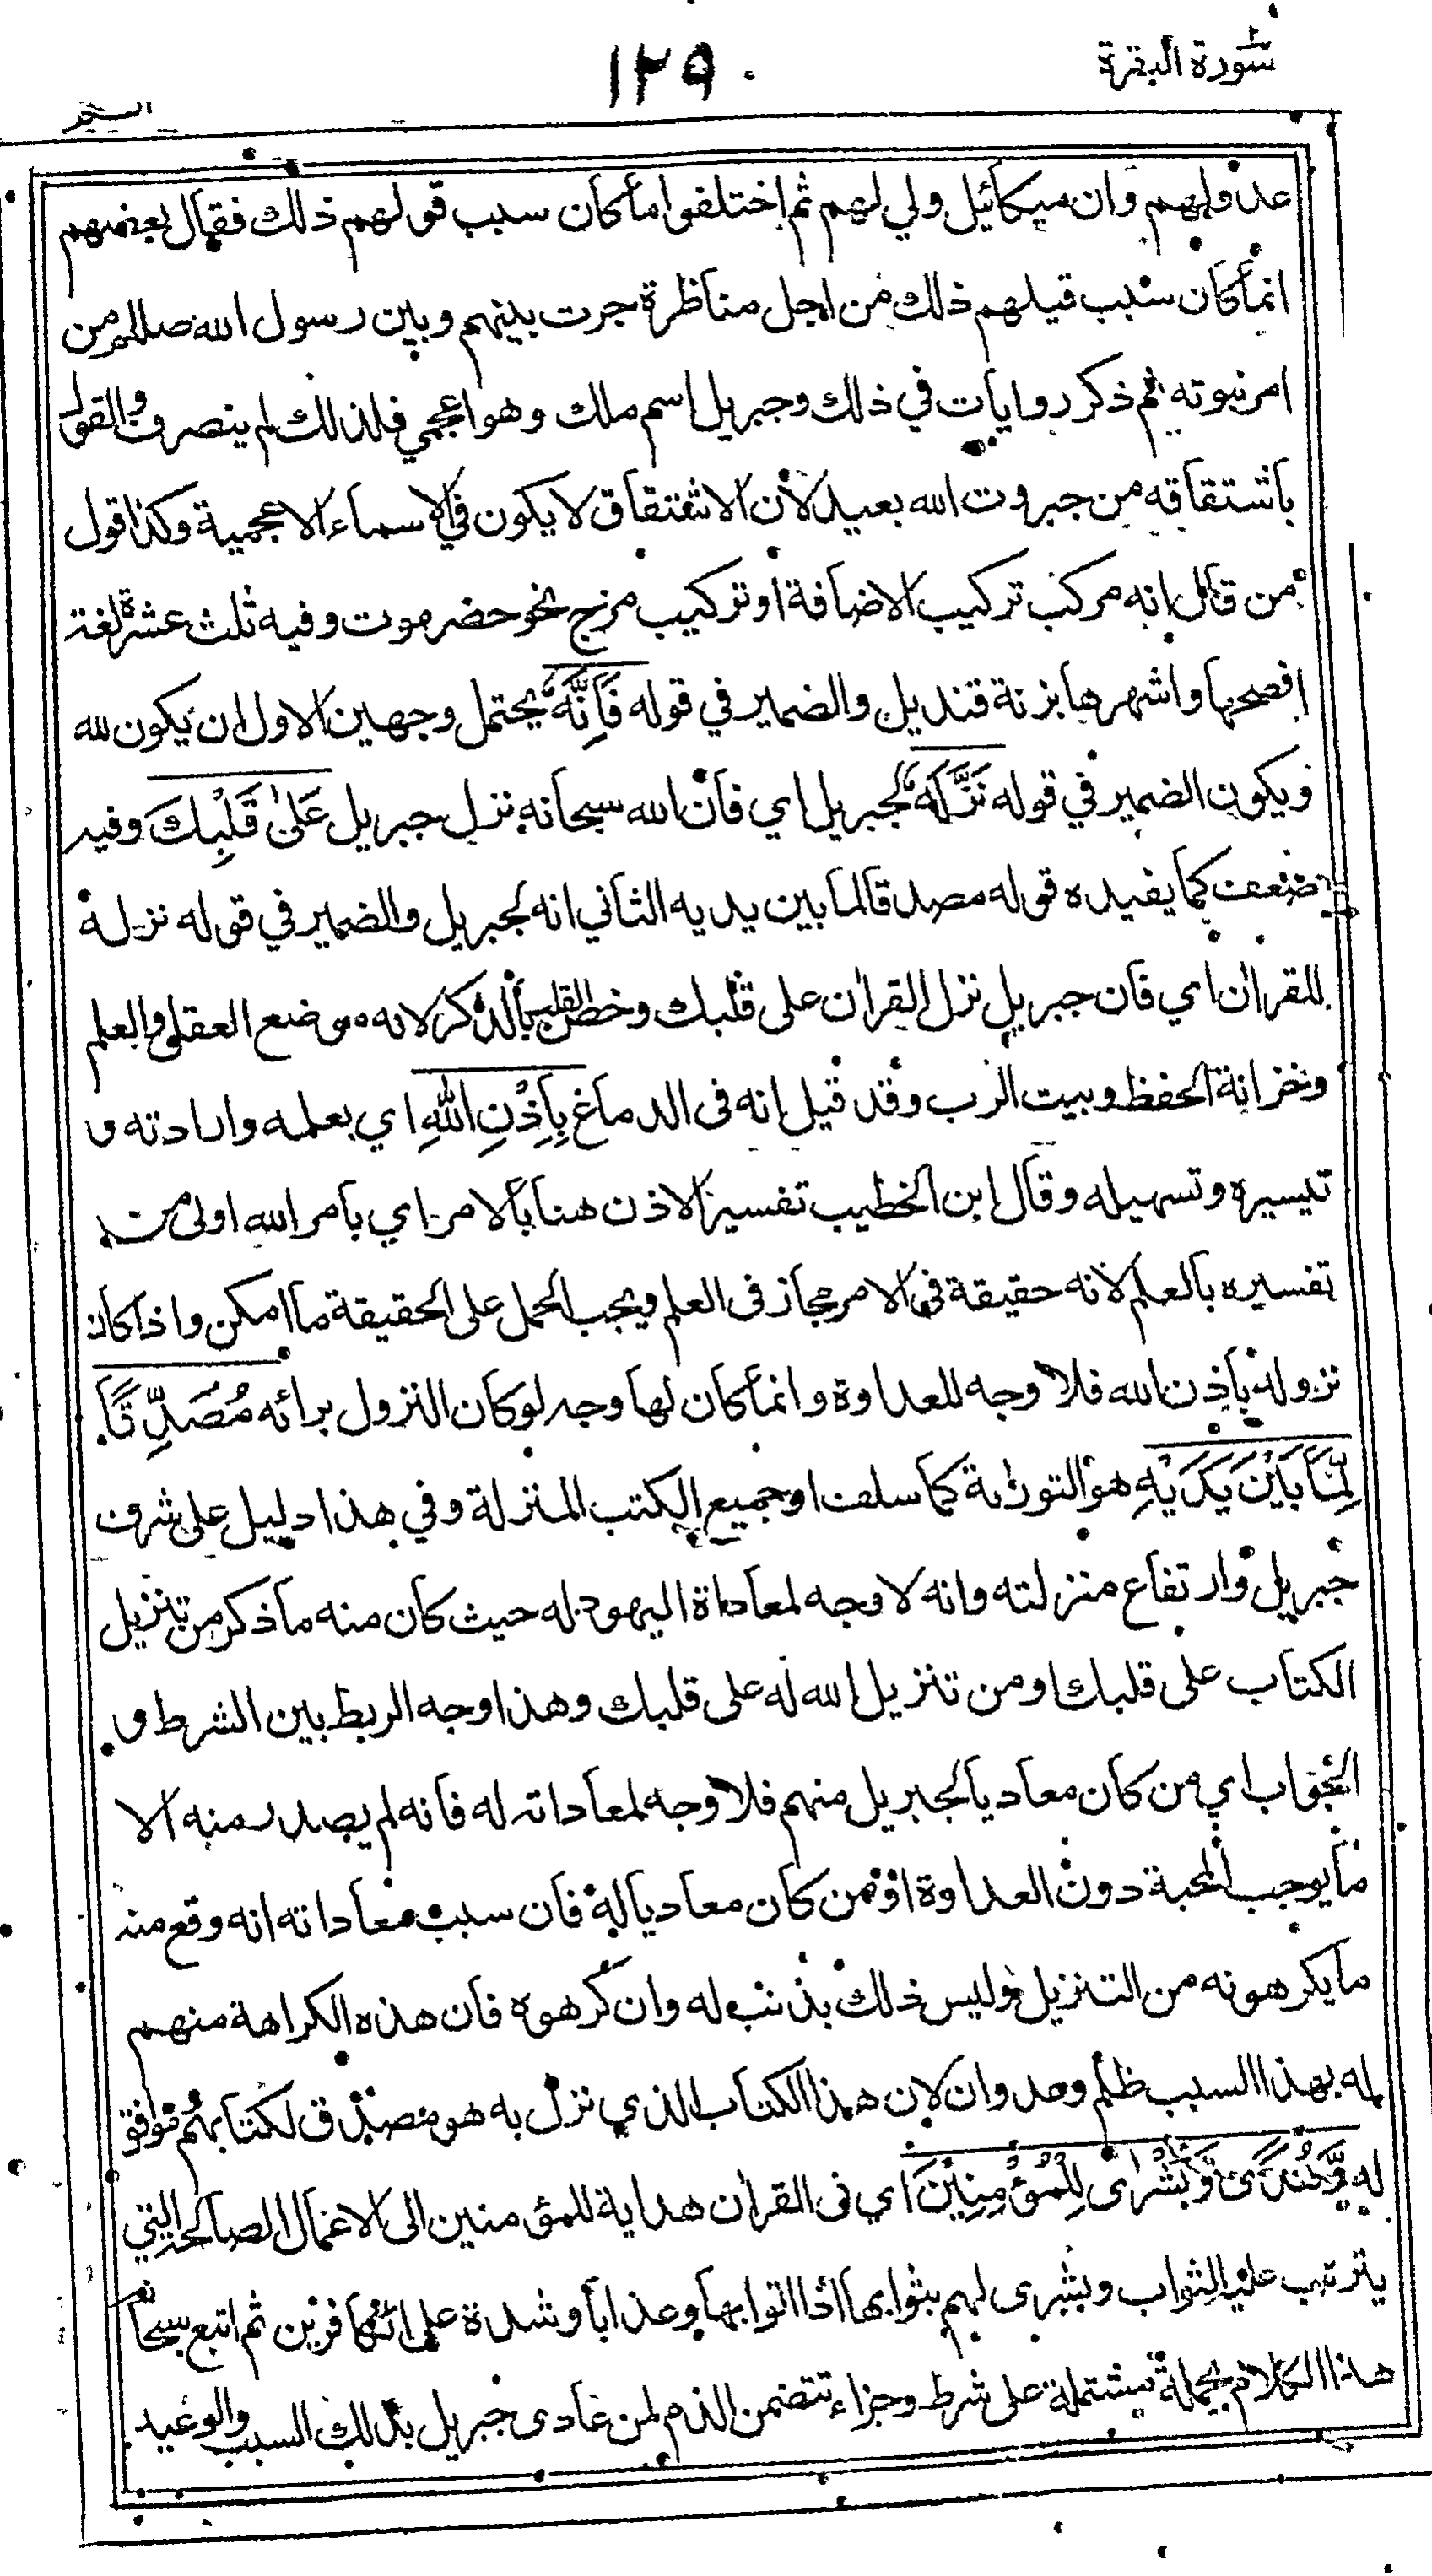 سورة البقرة
١٢٩
عدو لهم وان ميكائيل ولي لهم ثم اختلفوا ما كان سبب قولهم ذلك فقال بعضهم
انما كان سبب قيلهم ذلك من اجل مناظرة جرت بينهم وبين رسول الله صللم من
امر نبوته ثم ذكر روايات في ذلك وجبريل اسم ملك وهو اعجمي فلذلك لم ينصرف والقول
باشتقاقه من جبروت الله بعيد لأن الاشتقاق لا يكون في الاسماء الاعجمية وكذا قول
من قال انه مركب تركيب الاضافة او تركيب مزج نحو حضرموت وفيه ثلث عشرة لغة
افصحها واشهرها بزنة قنديل والضمير في قوله فَاِنَّهٗ يحتمل وجهين الاول ان يكون لله
ويكون الضمير في قوله نَزَّلَهٗ لجبريل اي فان الله سبحانه نزل جبريل عَلٰى قَلْبِكَ وفيه
ضعف كما يفيده قوله مصدقا لما بين يديه الثاني انه لجبريل والضمير في قوله نزله
للقران اي فان جبريل نزل القران على قلبك وخص القلب بالذكر لانه موضع العقل والعلم
وخزانة الحفظ وبيت الرب وقد قيل انه فى الدماغ بِاِذْنِ اللهِ اي بعلمه وارادته و
تيسيره وتسهيله وقال ابن الخطيب تفسير الاذن هنا بالامر اي بامر الله اولى من
تفسيره بالعلم لانه حقيقة في الامر مجاز فى العلم ويجب الحمل على الحقيقة ما امكن واذا كان
نزوله باذن الله فلا وجه للعداوة وانما كان لها وجه لو كان النزول برائه مُصَدِّقًا
لِّمَا بَيْنَ يَدَيْهِ هو التورٰىة كما سلف او جميع الكتب المنزلة وفي هذا دليل على شرف
جبريل وارتفاع منزلته وانه لا وجه لمعاداة اليهود له حيث كان منه ما ذكر من تنزيل
الكتاب على قلبك او من تنزيل الله له على قلبك وهذا وجه الربط بين الشرط و
الجواب اي من كان معاديا لجبريل منهم فلا وجه لمعاداته له فانه لم يصدر منه الا
ما يوجب المحبة دون العداوة او من كان معاديا له فان سبب معاداته انه وقع منه
ما يكرهونه من التنزيل وليس ذلك بذنب له وان كرهوه فان هذه الكراهة منهم
له بهذا السبب ظلم وعدوان لان هذا الكتاب الذي نزل به هو مصدق لكتابهم موافق
له وَّهُدًى وَّبُشْرٰى لِلْمُؤْمِنِيْنَ اي فى القران هداية للمؤمنين الى الاعمال الصالحة التي
يترتب عليها الثواب وبشرى لهم بثوابها اذا اتوا بها وعذابا وشدة على الكافرين ثم اتبع سبحانه
هذا الكلام بجملة مشتملة على شرط وجزاء تتضمن الذم لمن عادى جبريل بذلك السبب والوعيد